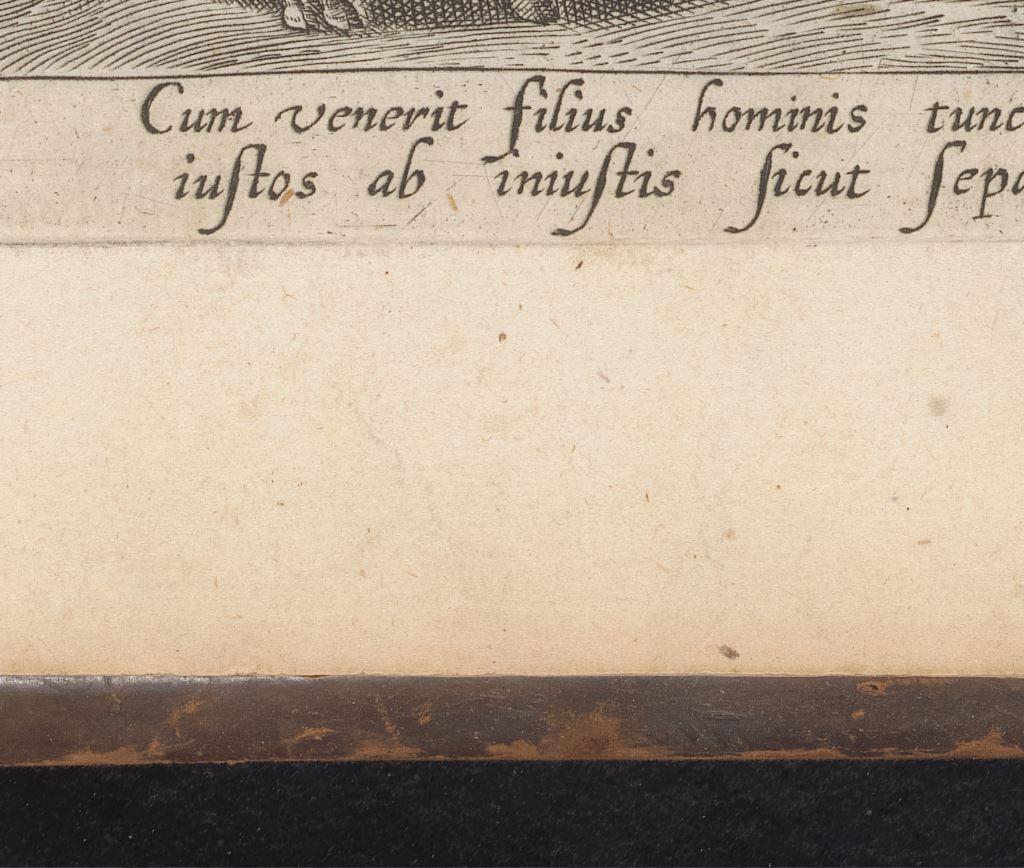 Cum venerit filius hominis tunc
iuſtos ab iniuſtis ſicut ſepa